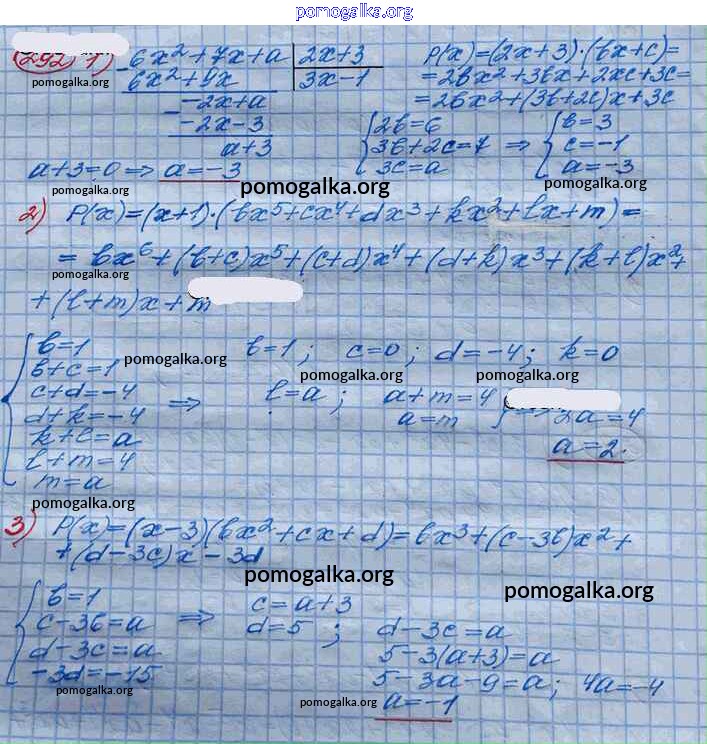 pomogalka.org
292 1) 6x²+7x+a | 2x+3
6x²+9x | 3x-1
pomogalka.org
-2x+a
-2x-3
a+3
a+3=0 ⇒ a=-3
P(x)=(2x+3)·(bx+c)=
=2bx²+3bx+2xc+3c=
=2bx²+(3b+2c)x+3c
{2b=6
3b+2c=7 ⇒ {b=3
3c=a
c=-1
a=-3
pomogalka.org
pomogalka.org
2) P(x)=(x+1)·(bx⁵+cx⁴+dx³+kx²+lx+m)=
= bx⁶+(b+c)x⁵+(c+d)x⁴+(d+k)x³+(k+l)x²+
pomogalka.org
+(l+m)x+m
{b=1
b+c=1
c+d=-4
d+k=-4
k+l=a
l+m=4
m=a
pomogalka.org
⇒ b=1; c=0; d=-4; k=0
pomogalka.org
pomogalka.org
l=a; a+m=4
a=m
2a=4
a=2.
pomogalka.org
3) P(x)=(x-3)(bx²+cx+d)=bx³+(c-3b)x²+
+(d-3c)x-3d
pomogalka.org
pomogalka.org
{b=1
c-3b=a
d-3c=a
-3d=-15
⇒ c=a+3
d=5; d-3c=a
5-3(a+3)=a
5-3a-9=a; 4a=-4
pomogalka.org
pomogalka.org
a=-1